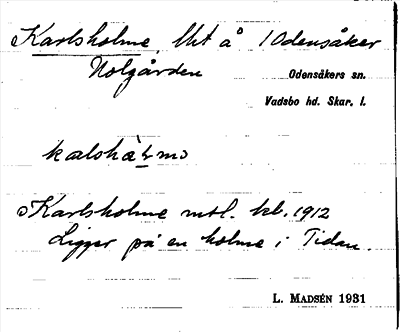 Karlsholme, lht å 1 Odensåker
Nolgården
Odensåkers sn.
Vadsbo hd. Skar. l.
Karlsholme mtl. kb. 1912
Ligger på en holme i Tidan.
L. MADSÉN 1931